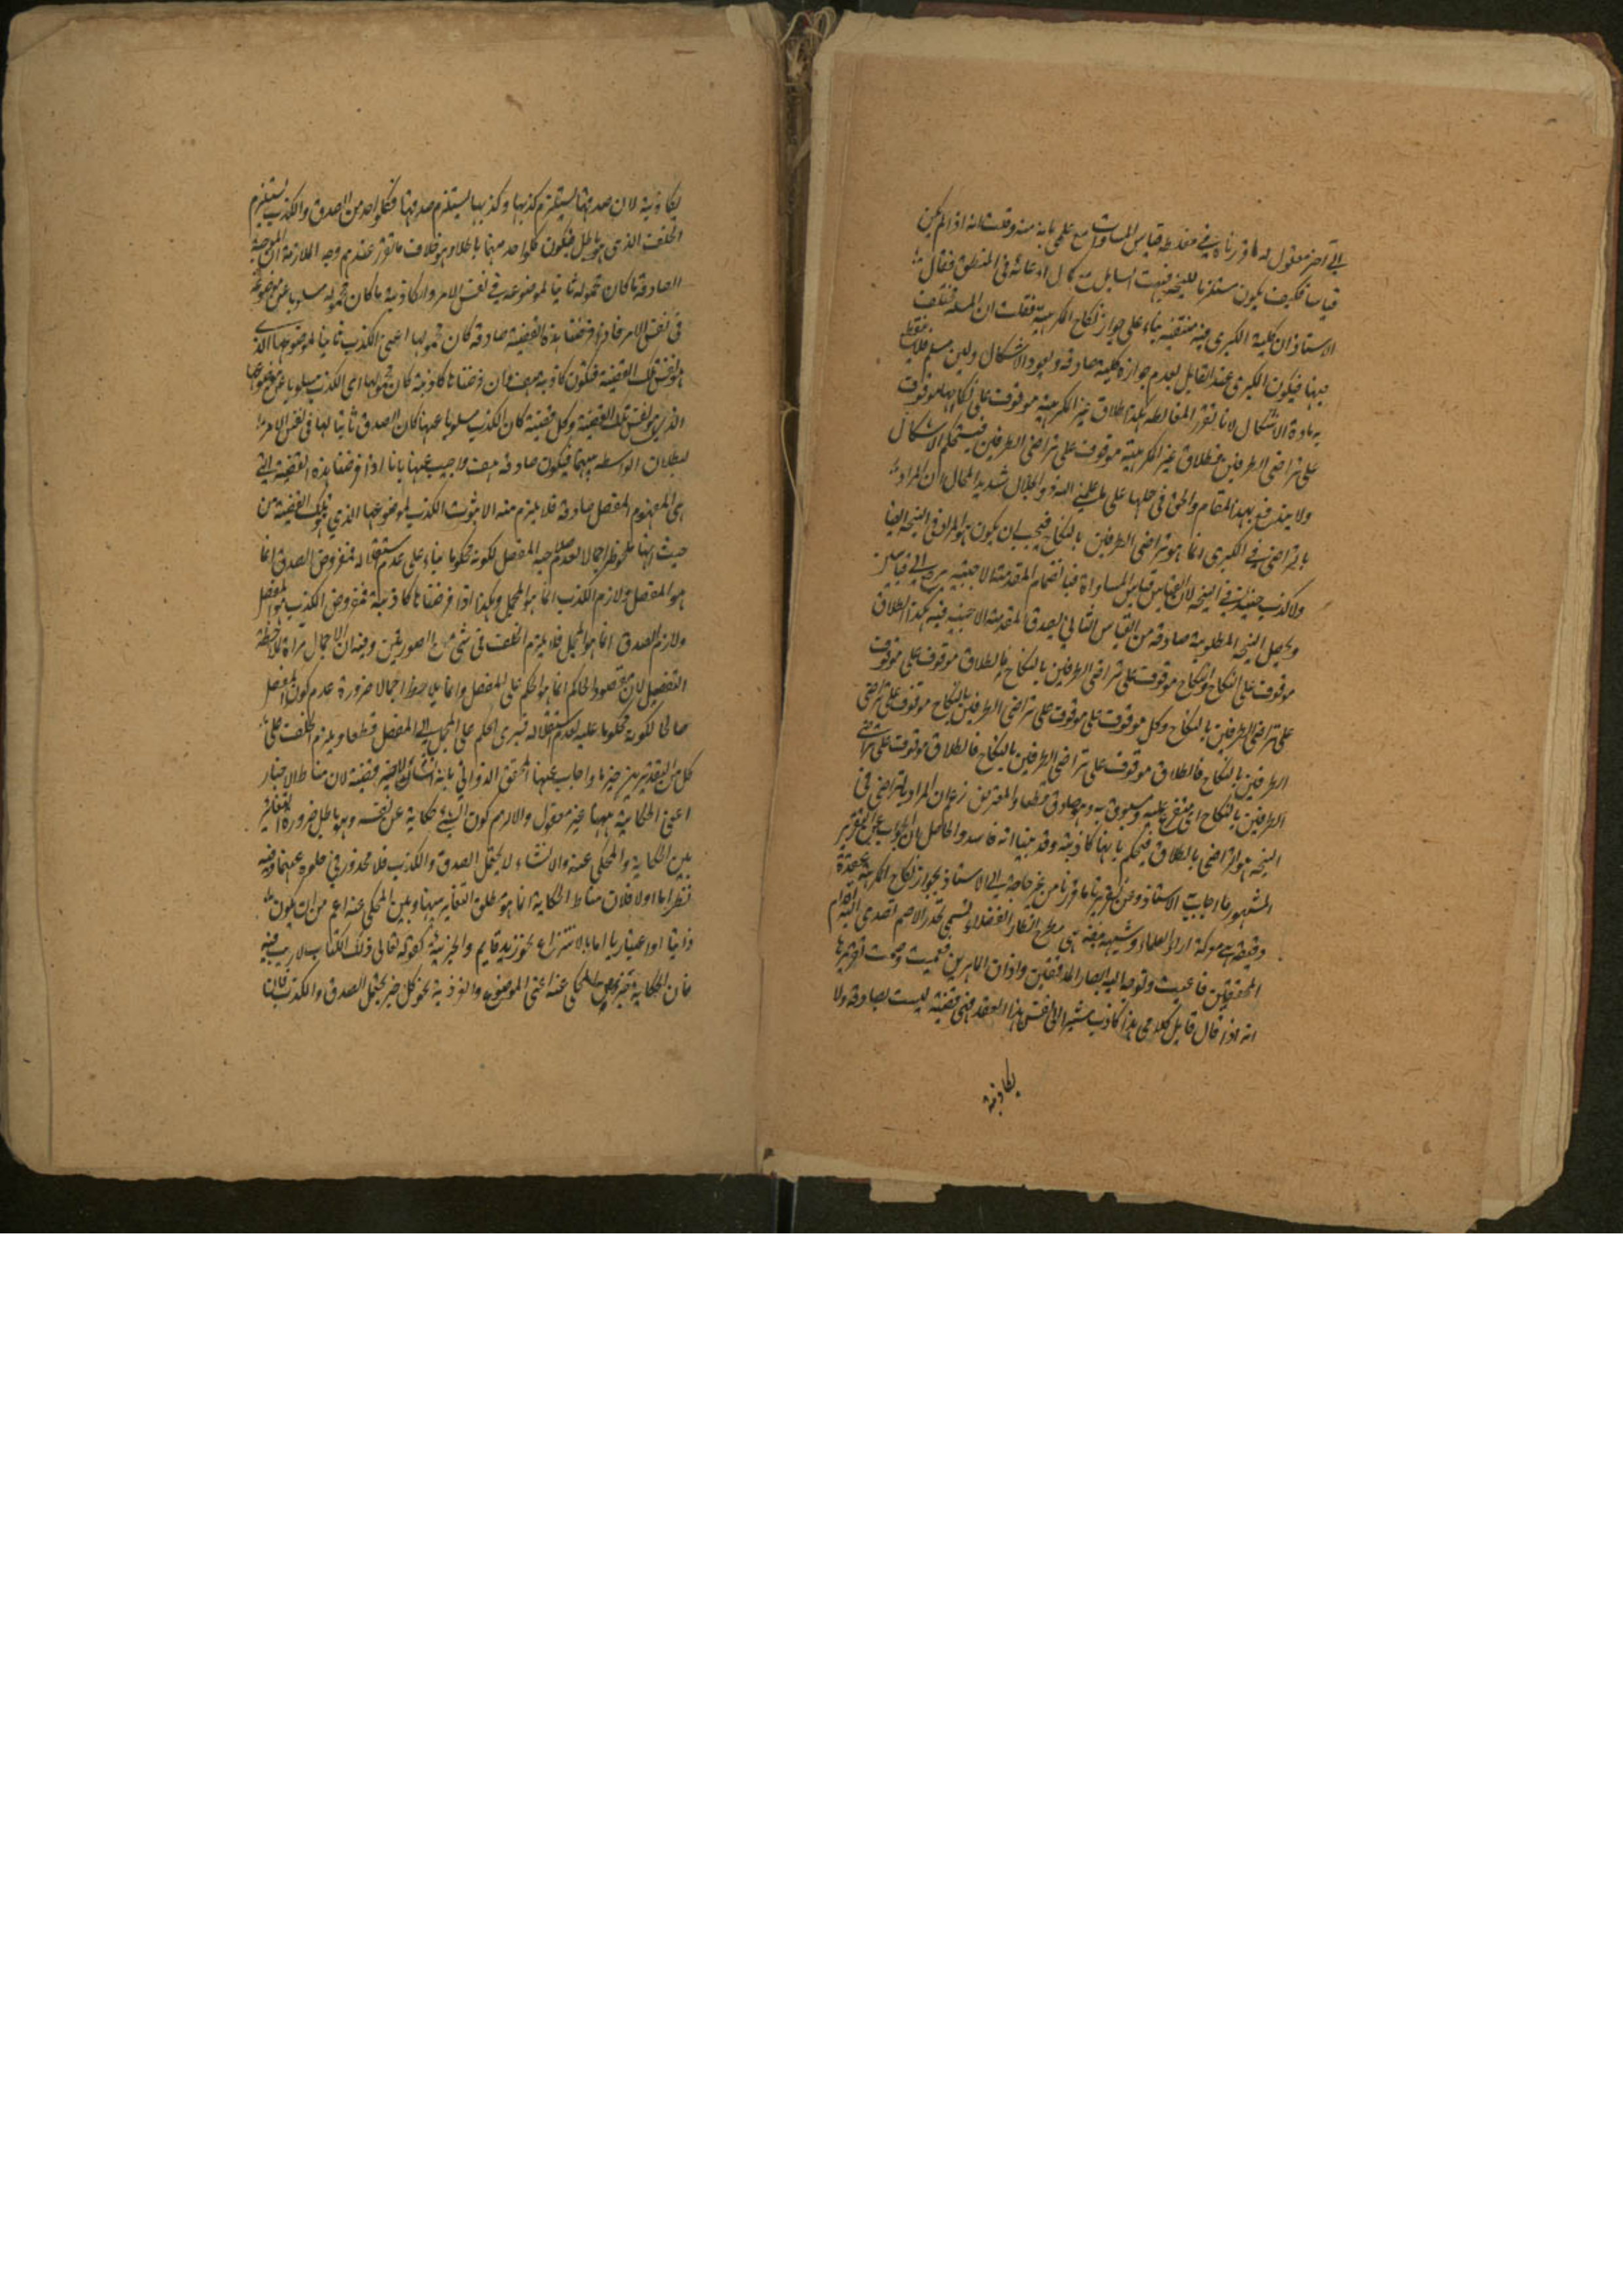 الى آخر معقول له ما قررناه في مغلطة قياس المساوات مع علمي بانه منه وقلت له انه اذا لم يكن
قياسا فكيف يكون مستلزما للنتيجة فبهت السايل مع كمال ادعائه في المنطق فقال
الاستاذ ان كلية الكبرى فيه منتقضة بناء على جواز نكاح المكرهة فقلت ان المسئلة
فيها فيكون الكبرى عند القايل بعدم جوازه كلية صادقة ويعود الاشكال ولئن سلم فلا
مادة الاشكال لانا نقرر المغالطة هكذا طلاق غير المكرهة موقوف على نكاحها موقوف
على تراضي الطرفين فطلاق غير المكرهة موقوف على تراضي الطرفين فيستحكم الاشكال
ولا يندفع بهذا المقام والحق في حلها على ما علمني الله ذو الجلال شديد المحال ان المراد
بالتراضي في الكبرى انما هو تراضي الطرفين بالنكاح فيجب ان يكون هو المراد في النتيجة ايضا
ولا كذب حينئذ في النتيجة لان القياس قياس المساواة فبانضمام المقدمة الاجنبية يرجع الى قياسين
ويحصل النتيجة المطلوبة صادقة من القياس الثاني لصدق المقدمة الاجنبية فيه هكذا الطلاق
موقوف على النكاح والنكاح موقوف على تراضي الطرفين بالنكاح فالطلاق موقوف على موقوف
على تراضي الطرفين بالنكاح وكل موقوف على موقوف على تراضي الطرفين بالنكاح موقوف على تراضي
الطرفين بالنكاح فالطلاق موقوف على تراضي الطرفين بالنكاح فالطلاق موقوف على تراضي
الطرفين بالنكاح اي متفرع عليه ومسبوق به وهو صادق قطعا والمعترض زعم ان المراد بالتراضي في
النتيجة هو التراضي بالطلاق فيحكم بانها كاذبة وقد بينا انه فاسد والحاصل ان الجواب عن التقرير
المشهور ما اجاب الاستاذ وعن تقريرنا ما قررنا من غير حاجة الى الاستاذ بجواز نكاح المكرهة
دقيقة هي معركة اراء العلماء وشبهة هي مطرح انظار الفضلاء تسمى بجذر الاصم تصدى اليه اقدام
المحققين فاعيت وتوجه اليه ابصار المدققين واذان الماهرين فعميت وصمت تقريرها
انه اذا قال قايل كلامي هذا كاذب مشيرا الى نفس هذا العقد فهي قضية ليست بصادقة ولا
بكاذبة
بكاذبة لان صدقها يستلزم كذبها وكذبها يستلزم صدقها فكل واحد من الصدق والكذب يستلزم
الخلف الذي هو باطل فيكون كل واحد منهما باطلا وهو خلاف ما تقرر عندهم وجه الملازمة ان الموجبة
الصادقة ما كان محموله ثابتا لموضوعه في نفس الامر والكاذبة ما كان محموله مسلوبا عن موضوعه
في نفس الامر فاذا فرضنا هذه القضية صادقة كان محمولها اعني الكذب ثابتا لموضوعها الذي
هو نفس تلك القضية فتكون كاذبة هف وان فرضناها كاذبة كان محمولها اي الكذب مسلوبا عن موضوعها
الذي هو نفس تلك القضية وكل قضية كان الكذب مسلوبا عنها كان الصدق ثابتا لها في نفس الامر
لبطلان الواسطة بينهما فيكون صادقة هف واجيب عنها بانا اذا فرضنا هذه القضية التي
هي المفهوم المفصل صادقة فلا يلزم منه الا ثبوت الكذب لموضوعها الذي هو تلك القضية من
حيث انها ملحوظ اجمالا لعدم صلاحية المفصل لكونه محكوما بناء على عدم استقلاله فمفروض الصدق انما
هو المفصل ولازم الكذب انما هو المجمل وهكذا اذا فرضناها كاذبة فمفروض الكذب هو المفصل
ولازم الصدق انما هو المجمل فلا يلزم الخلف في شئ من الصورتين وفيه ان الاجمال مراة لملاحظة
التفصيل لان مقصود الحاكم انما هو الحكم على المفصل وانما يلاحظ اجمالا ضرورة عدم كون المفصل
صالحا لكونه محكوما عليه لعدم استقلاله فيسرى الحكم على المجمل الى المفصل قطعا ويلزم الخلف على
كل من التقديرين جزما واجاب عنها المحقق الدواني بانه انشاء لا خبر قضية لان مناط الاخبار
اعني الحكاية ههنا غير معقول والا لزم كون الشئ حكاية عن نفسه وهو باطل ضرورة المغايرة
بين الحكاية والمحكي عنه والانشاء لا يحتمل الصدق والكذب فلا محذور في خلوه عنهما وفيه
نظر اما اولا فلان مناط الحكاية انما هو مطلق التغاير بينها وبين المحكي عنه اعم من ان يكون
ذاتيا او اعتباريا اما بالانتزاع نحو زيد قايم والجزئية كقوله تعالى ذلك الكتاب لا ريب فيه
فان الحكاية المحكي عنه اعني الموضوع والفردية نحو كل خبر يحتمل الصدق والكذب فان